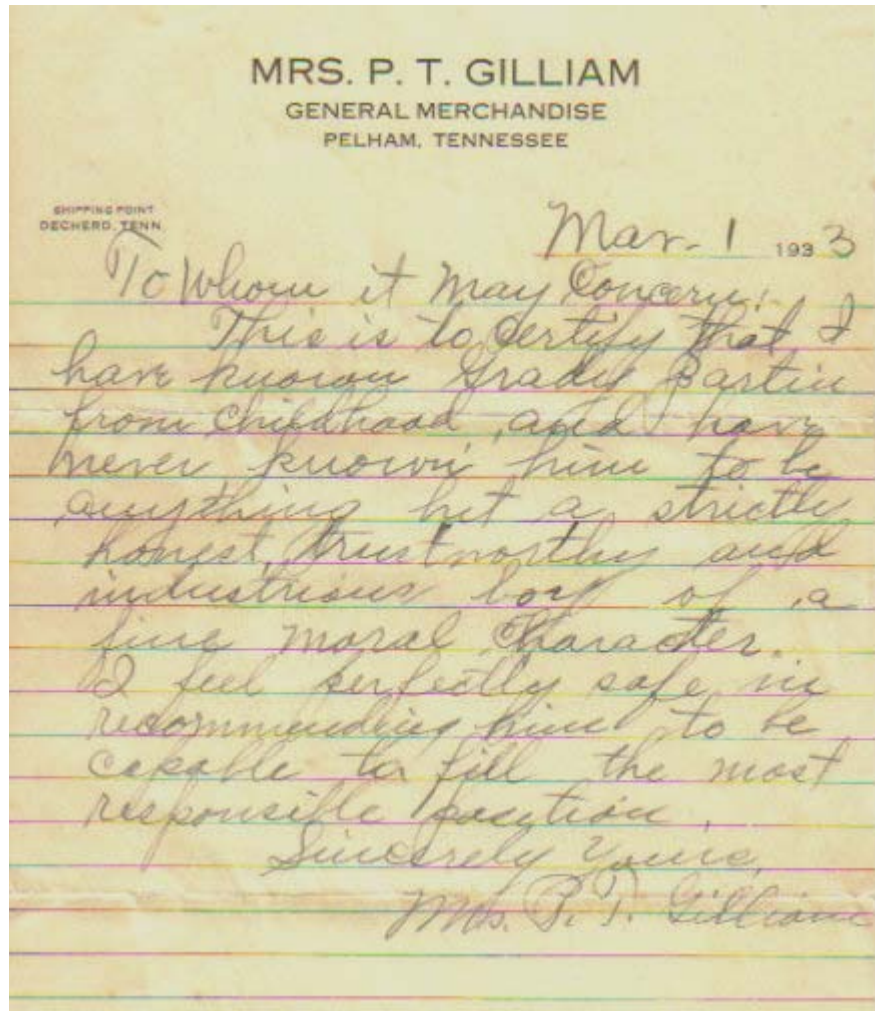 MRS. P. T. GILLIAM
GENERAL MERCHANDISE
PELHAM, TENNESSEE
SHIPPING POINT
DECHERD, TENN.
Mar. 1 1933
To Whom it May Concern:
This is to Certify that I
have known Grady Partin
from Childhood, and have
never known him to be
anything but a strictly
honest, trustworthy and
industrious boy of a
fine moral Character.
I feel perfectly safe in
recommending him to be
capable to fill the most
responsible position.
Sincerely Yours,
Mrs. P. T. Gilliam